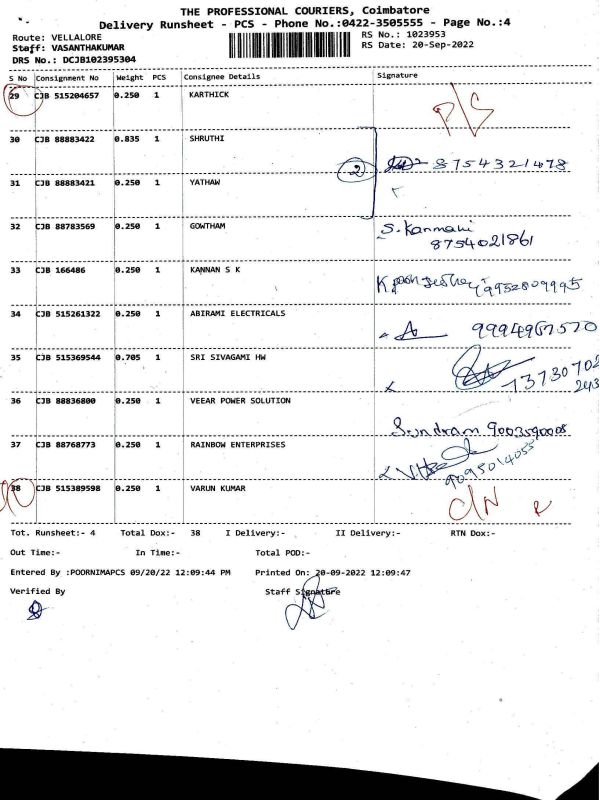 THE PROFESSIONAL COURIERS, Coimbatore
Delivery Runsheet - PCS - Phone No.:0422-3505555 - Page No.:4
Route: VELLALORE
RS No.: 1023953
Staff: VASANTHAKUMAR
RS Date: 20-Sep-2022
DRS No.: DCJB102395304
S No Consignment No Weight PCS Consignee Details Signature
29 CJB 515204657 0.250 1 KARTHICK
30 CJB 88883422 0.835 1 SHRUTHI
2 8754321478
31 CJB 88883421 0.250 1 YATHAW
32 CJB 88783569 0.250 1 GOWTHAM S. Kanmani
8754021861
33 CJB 166486 0.250 1 KANNAN S K 9952809995
34 CJB 515261322 0.250 1 ABIRAMI ELECTRICALS
35 CJB 515369544 0.705 1 SRI SIVAGAMI HW
36 CJB 88836800 0.250 1 VEEAR POWER SOLUTION
Sundram
37 CJB 88768773 0.250 1 RAINBOW ENTERPRISES
9095014055
38 CJB 515389598 0.250 1 VARUN KUMAR
Tot. Runsheet:- 4 Total Dox:- 38 I Delivery:- II Delivery:- RTN Dox:-
Out Time:- In Time:- Total POD:-
Entered By :POORNIMAPCS 09/20/22 12:09:44 PM Printed On: 20-09-2022 12:09:47
Verified By Staff Signature